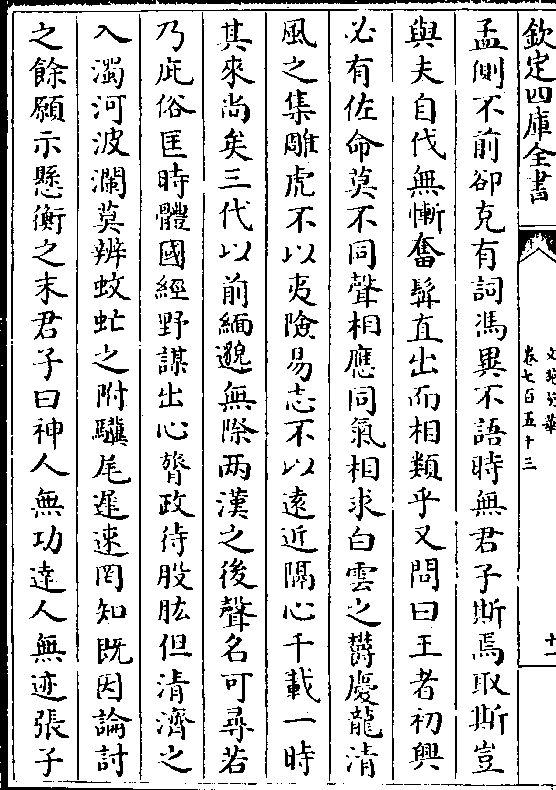 欽定四庫全書
文苑英華
卷七百五十三
十一
孟側不前卻克有詞馮異不語時無君子斯焉取斯豈
與夫自伐無慚奮髯直出而相類乎又問曰王者初興
必有佐命莫不同聲相應同氣相求白雲之欝慶龍清
風之集雕虎不以夷險易志不以遠近隔心千載一時
其來尚矣三代以前緬邈無際兩漢之後聲名可尋若
乃庇俗匡時體國經野謀出心膂政待股肱但清濟之
入濁河波瀾莫辨蚊虻之附驥尾遲速罔知既因論討
之餘願示懸衡之末君子曰神人無功達人無迹張子